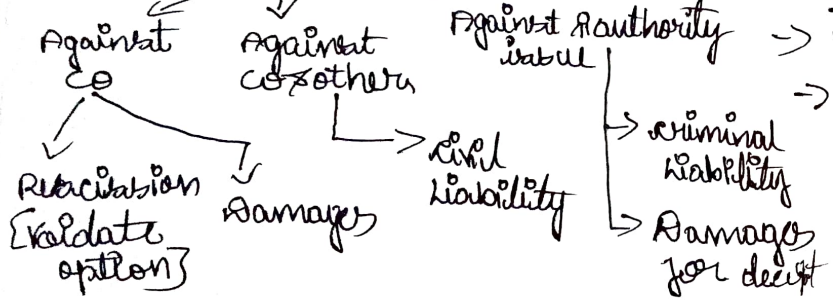 Against
Co
Against
co & others
Against authority
issue
Rescission
[voidate
option]
Damages
civil
Liability
criminal
Liability
Damages
for deceit